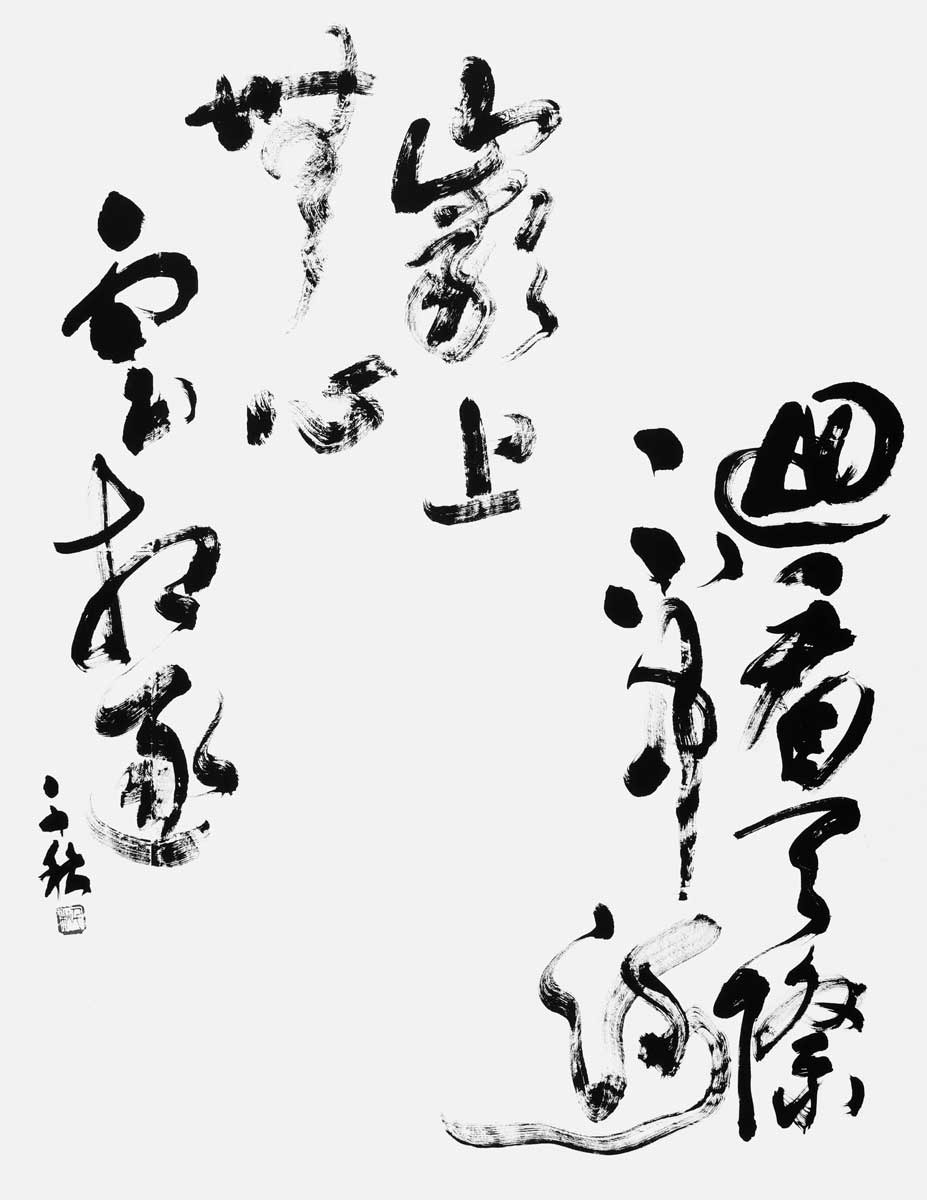 迴看天際
下中流
巖上
無心
雲相逐
千秋